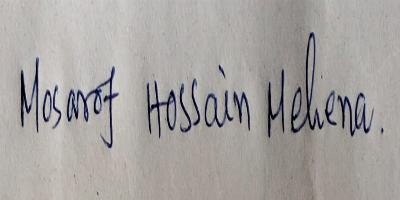 Mosarof Hossain Mehena.